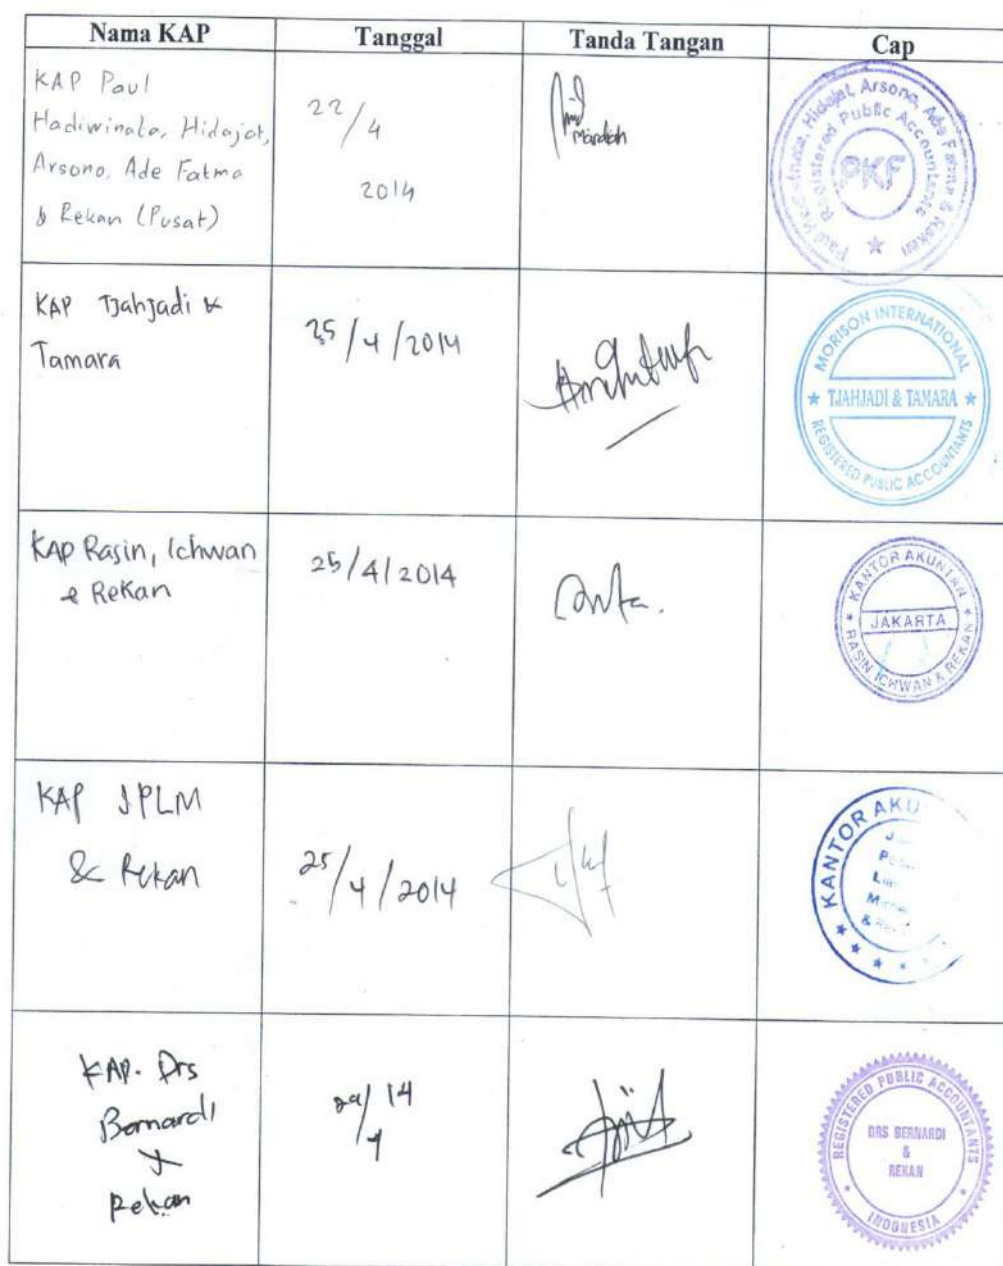 Nama KAP Tanggal Tanda Tangan Cap
KAP Paul
Hadiwinata, Hidajat,
Arsono, Ade Fatma
& Rekan (Pusat)
22/4
2014
Mardiah
Paul Hadiwinata, Hidajat, Arsono, Ade Fatma & Rekan
Registered Public Accountants
PKF
KAP Tjahjadi &
Tamara
25/4/2014
MORISON INTERNATIONAL
TJAHJADI & TAMARA
REGISTERED PUBLIC ACCOUNTANTS
KAP Rasin, Ichwan
& Rekan
25/4/2014
KANTOR AKUNTAN
JAKARTA
RASIN, ICHWAN & REKAN
KAP JPLM
& Rekan
25/4/2014
KANTOR AKU
KAP. Drs
Bernardi
&
Rekan
14
4
REGISTERED PUBLIC ACCOUNTANTS
DRS BERNARDI
&
REKAN
INDONESIA